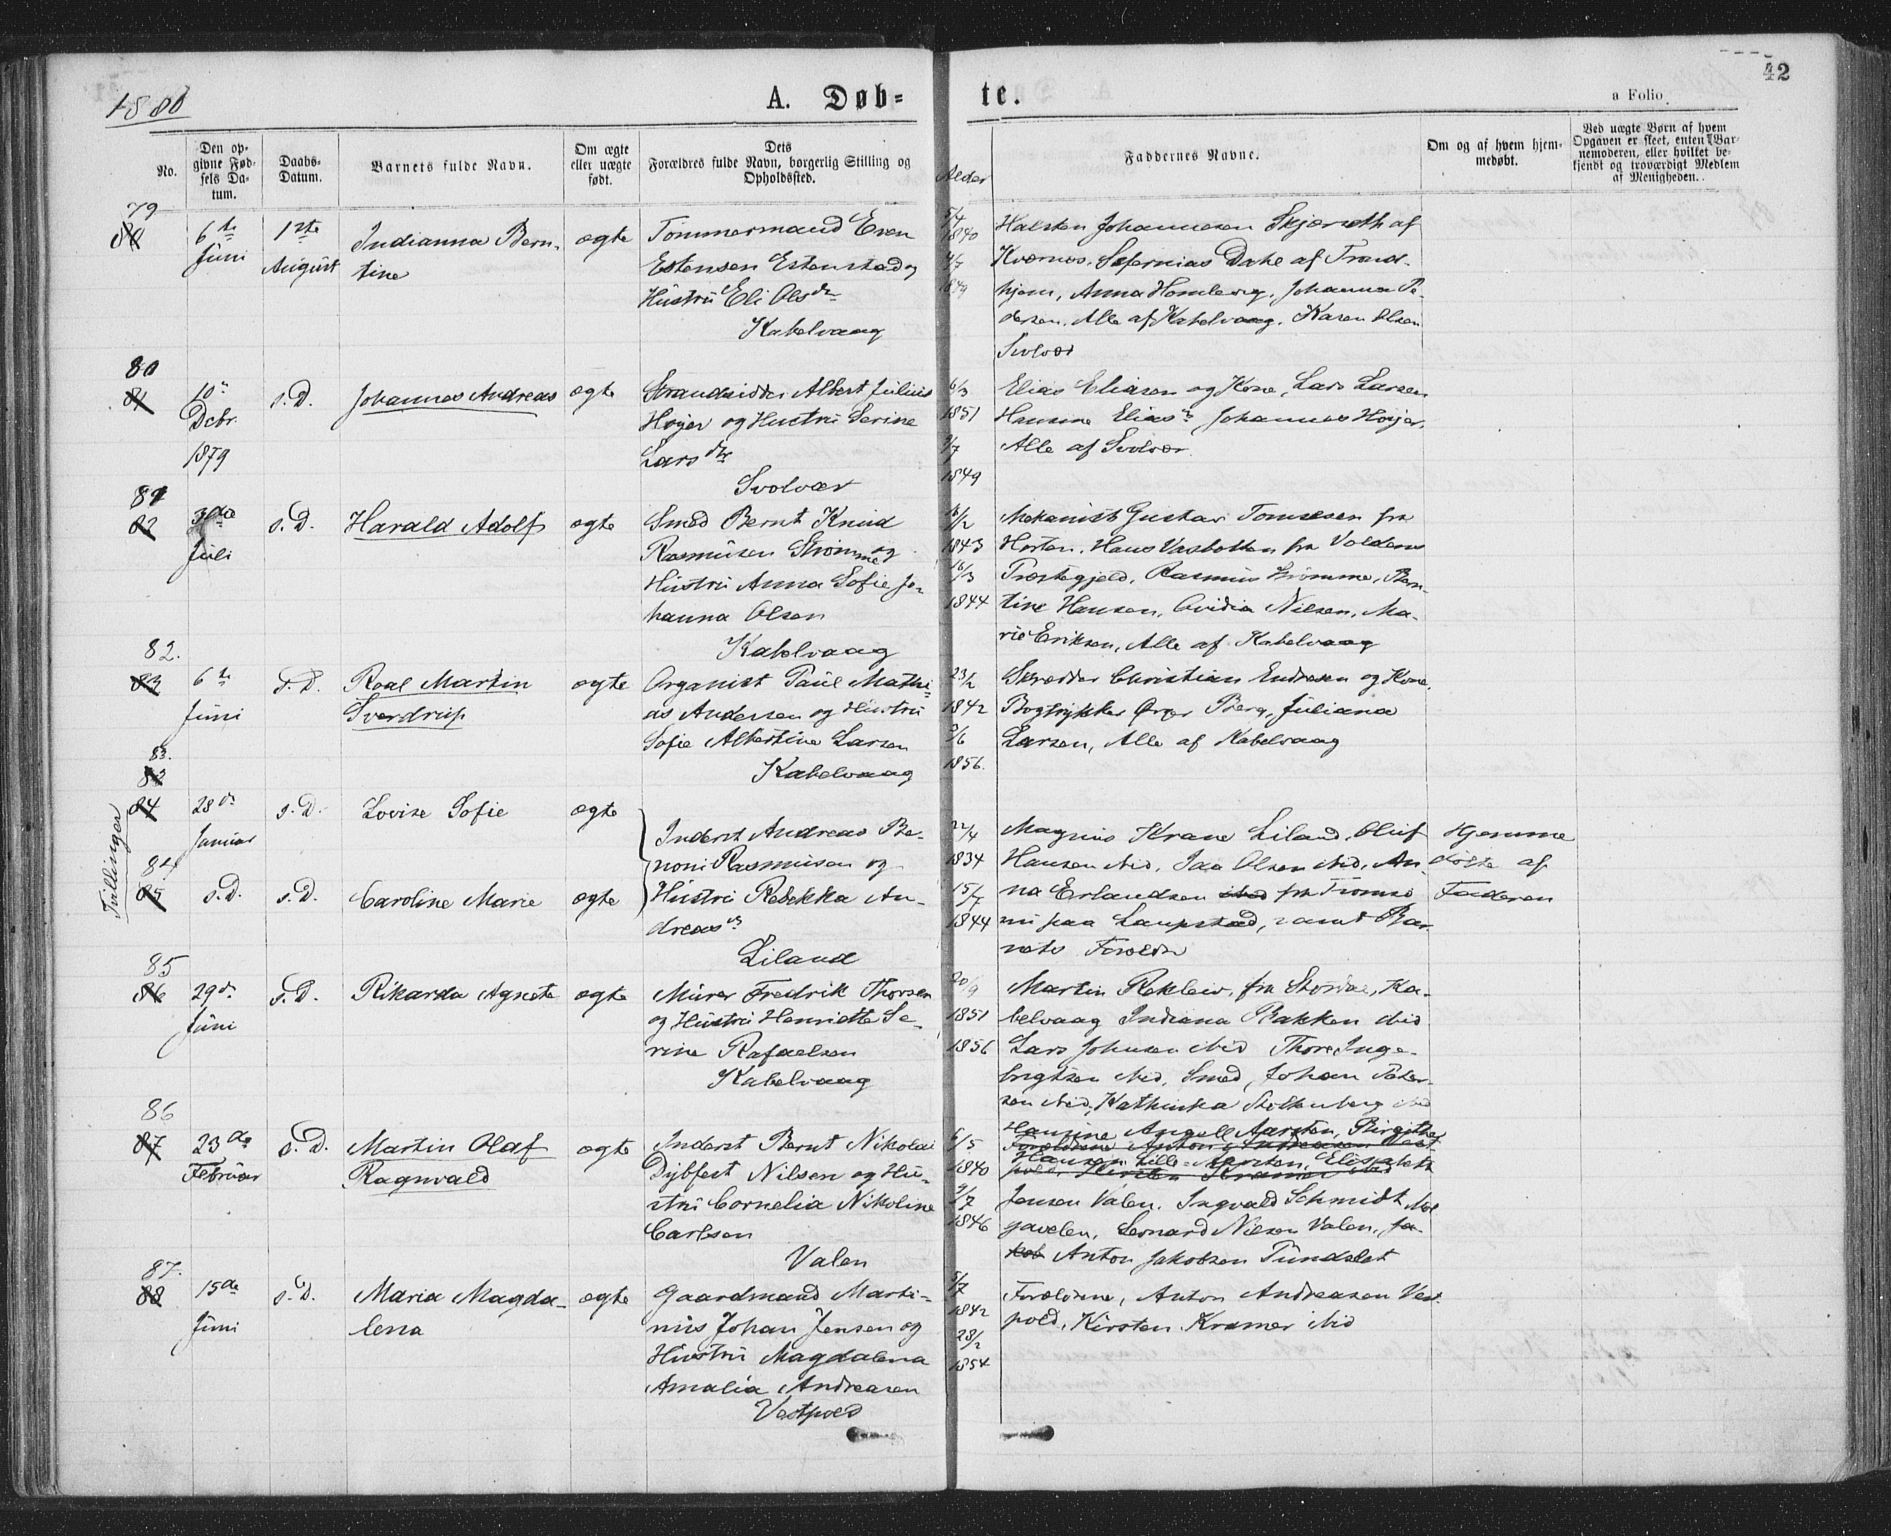 1880
A. Døb-
te.
42
a Folio
No.
Den op-
givne Fød-
sels Da-
tum.
Daabs-
Datum.
Barnets fulde Navn.
Om ægte
eller uægte
født.
Dets
Forældres fulde Navn, borgerlig Stilling og
Opholdssted.
Alder
Faddernes Navne.
Om og af hvem hjem-
medøbt.
Ved uægte Børn af hvem
Opgaven er skeet, enten Bar-
nemoderen, eller hvilket be-
kjendt og troværdigt Medlem
af Menigheden.
79
80
6te
Juni
1ste
August
Indianna Bern-
tine
ægte
Tømmermand Even
Estensen Estenstad og
Hustru Eli Olsdr
Kabelvaag
5/4
1840
4/7
Halsten Johannesen Skjærseth af
Kværnes. Sefernias Dahl af Trond-
hjem, Anna Homlevig. Johanna Pe-
dersen. Alle af Kabelvaag. Karen Olsen
Svolvær
80
81
10de
Dcbr.
1879
s.D.
Johannes Andreas
ægte
Strandsidder Albert Julius
Højer og Hustru Serine
Larsdtr
Svolvær
6/3
1851
9/7
1849
Elias Eliasen og Kone, Lars Larsen
Hansine Eliasdr Johannes Højer.
Alle af Svolvær
81
82
3die
Juli
s.D.
Harald Adolf
ægte
Smed Bernt Knud
Rasmusen Strømme og
Hustru Anna Sofie Jo-
hanna Olsen
Kabelvaag
1843
16/3
1844
Mekanist Gustav Tomsesen fra
Horten. Hans Vasbotten fra Voldens
Præstegjeld, Rasmus Strømme, Ben-
tine Hansen, Ovidia Nilsen, Ma-
rie Eriksen, Alle af Kabelvaag
82.
83
6te
Juni
s.D.
Roal Martin
Sverdrup
ægte
Organist Paul Mathi-
as Andersen og Hustru
Sofie Albertine Larsen
Kabelvaag
23/2
1842
3/6
1856.
Skrædder Christian Endresen og Kone,
Bogtrykker Berg, Juliana
Larsen, Alle af Kabelvaag
Tvillinger
83.
83
84
28de
Januar
s.D.
Lovise Sofie
ægte
Inderst Andreas Be-
noni Rasmusen og
Hustru Rebekka An-
dreasdr
Liland
22/4
1834
15/7
1844
Magnus Krane Liland, Oluf
Hansen ibid, Ida Olsen ibid, An-
na Erlandsen ibid fra Tromsø
nu paa Laupstad, samt Bar-
nets Forældre
Hjemme
døbt af
Faderen
84
85
s.D.
s.D.
Caroline Marie
ægte
85
86
29de
Juni
s.D.
Rikarda Agnete
ægte
Murer Fredrik Thorsen
og Hustru Henriette Se-
rine Rafaelsen
Kabelvaag
20/9
1851
1856
Martin Rekleiv, fra Ka-
belvaag Indiana Bakken ibid
Lars Johnsen ibid Thore Inge-
brigtsen ibid, Smed, Johan Peter-
sen ibid, Kathinka Stoltenberg ibid
86
87
23de
Februar
s.D.
Martin Olaf
Ragnvald
ægte
Inderst Bernt Nikolai
Dybfest Nilsen og Hu-
stru Cornelia Nikoline
Carlsen
Valen
6/5
1840
9/7
1846
Hansine Angell Aarsten, Birgithe
Forældrene Anton Andreasen Vest-
Hansen Lille-Aarsten, Elisabeth
pold, Kirsten Kramer ibid
Jensen Valen. Ingvald Schmidt, Mol-
gavelen, Leonard Nilsen Valen, Ja-
kob Anton Jakobsen Tundslet
87.
88
15de
Juni
s.D.
Maria Magda-
lena
ægte
Gaardmand Marti-
nus Johan Jensen og
Hustru Magdalena
Amalia Andreasen
Vestpold
5/7
1842
28/2
1854
Forældrene, Anton Andreasen Vest-
pold, Kirsten Kramer ibid